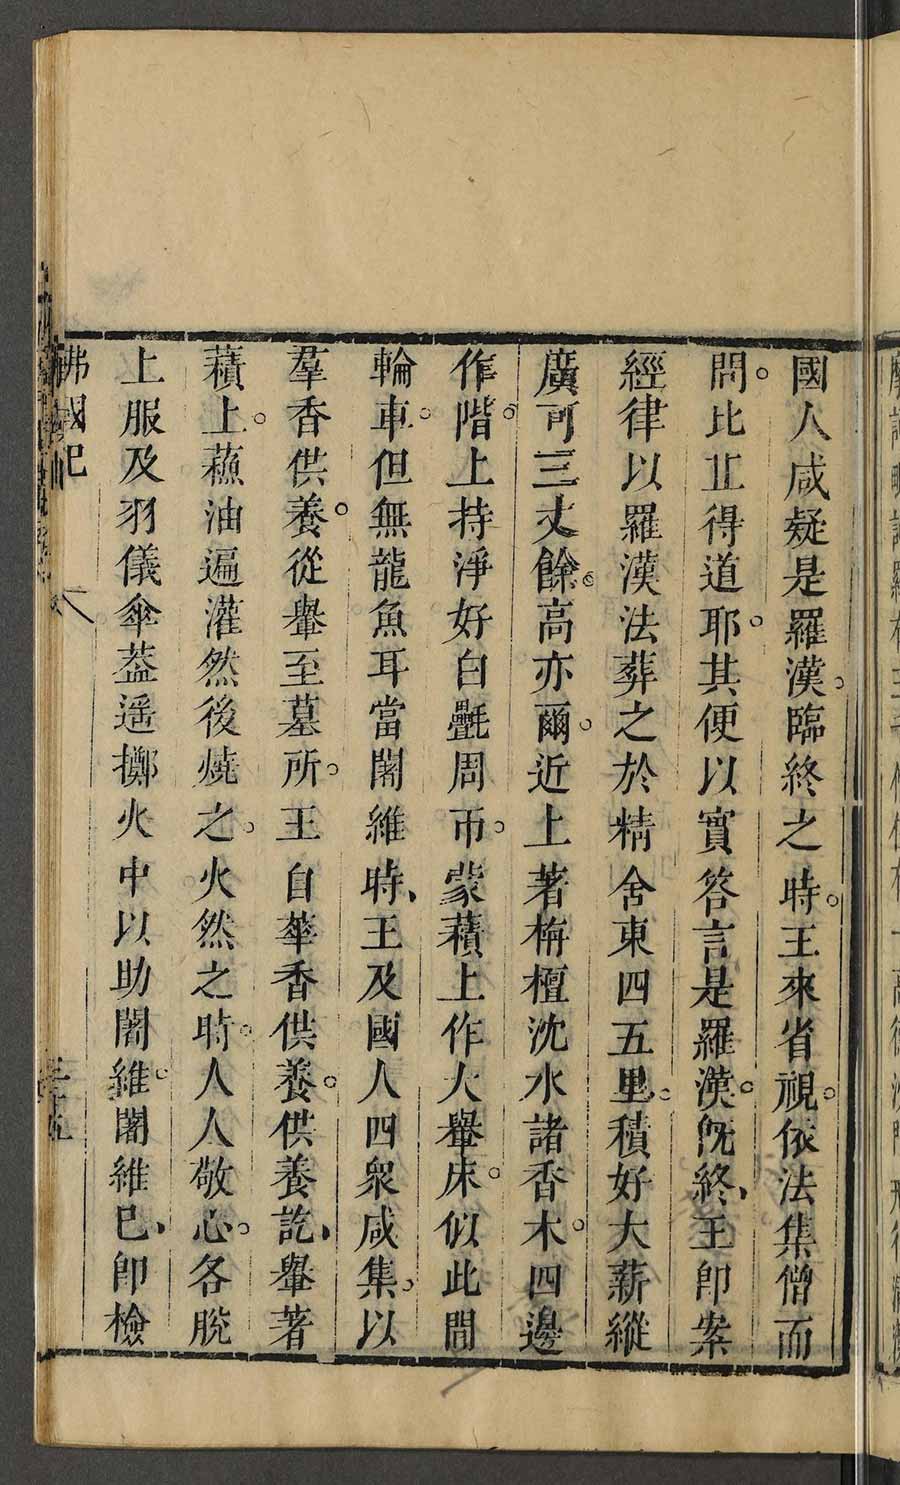 國人咸疑是羅漢臨終之時。王來省視。依法集僧而
問。比丘得道耶。其便以實答言是羅漢。旣終、王卽案
經律以羅漢法葬之於精舍東四五里。積好大薪縱
廣可三丈餘。高亦爾。近上著栴檀沈水諸香木。四邊
作階。上持淨好白㲲周帀。蒙𧂐上作大轝床。似此間
輪車。但無龍魚耳當闍維時、王及國人四衆咸集。以
華香供養。從轝至墓所。王自華香供養。供養訖、轝著
𧂐上。蘇油遍灌然後燒之。火然之時。人人敬心。各脫
上服及羽儀傘葢遥擲火中以助闍維。闍維已、卽檢
佛國記
三十五